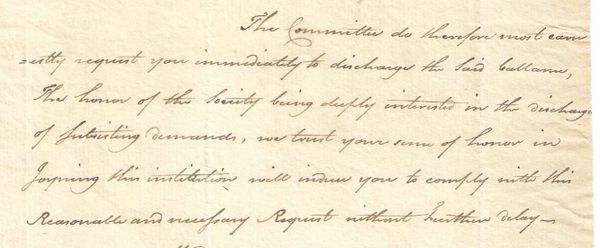 The Committee do therefore most earn
=estly request you immediately to discharge the said Ballance,
The honor of the Society being deeply interested in the discharge
of subsisting demands, we trust your sense of honor in
Joyning this institution will induce you to comply with this
Reasonable and necessary Request without Further delay—